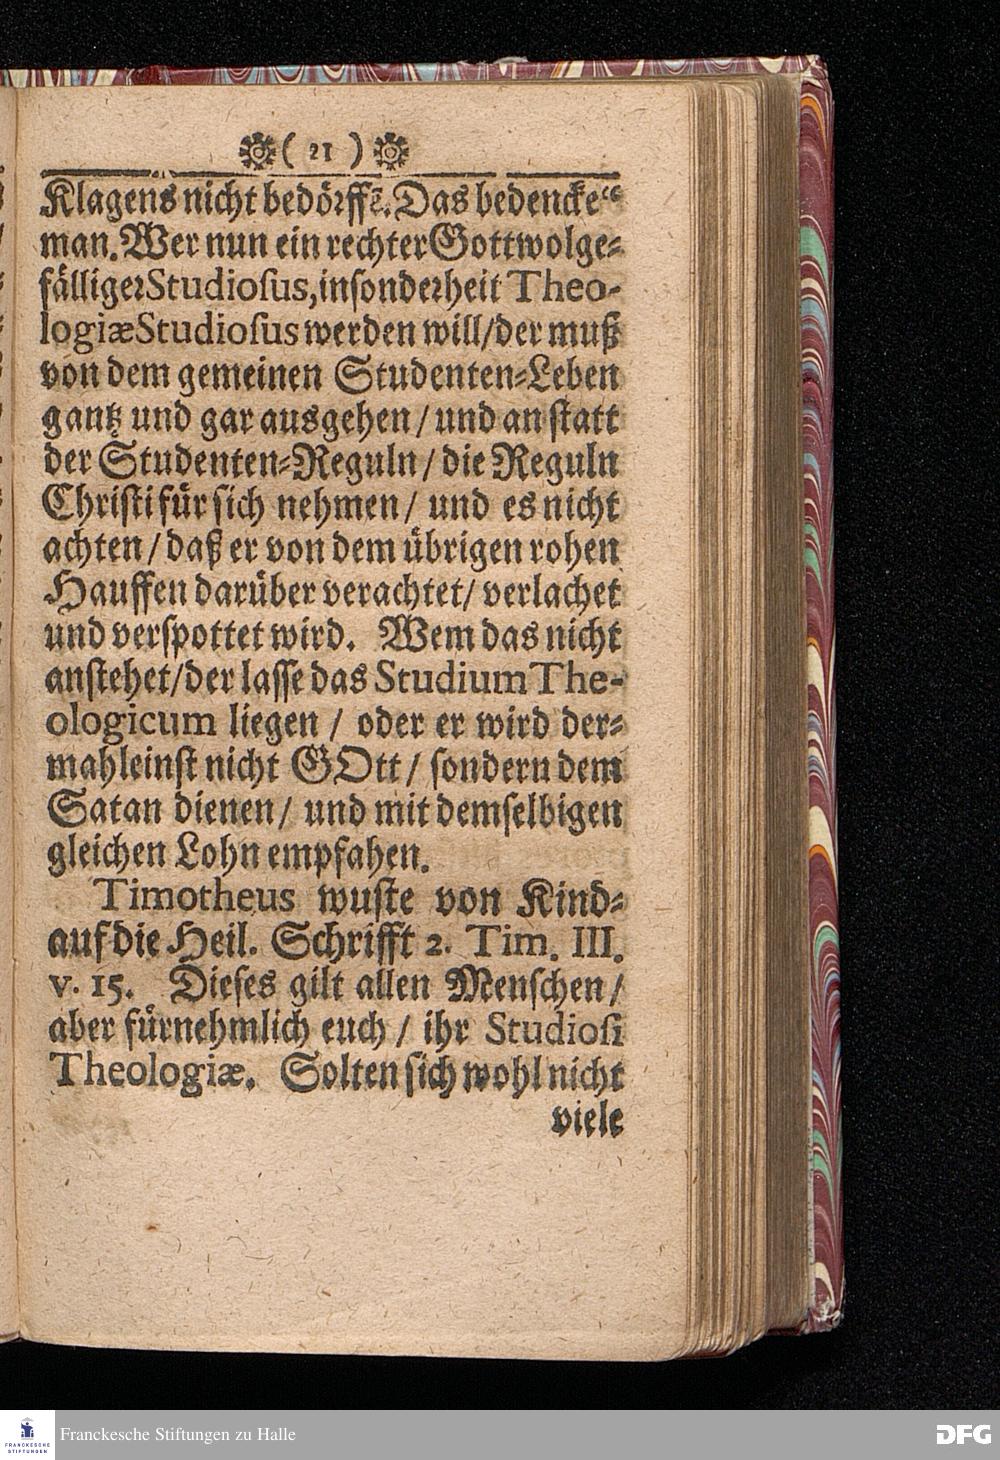 ( 21 )
Klagens nicht bedörffẽ. Das bedencke“
man. Wer nun ein rechter Gottwolge⸗
fälliger Studiosus, insonderheit Theo-
logiæ Studiosus werden will / der muß
von dem gemeinen Studenten⸗Leben
gantz und gar ausgehen / und an statt
der Studenten⸗Reguln / die Reguln
Christi für sich nehmen / und es nicht
achten / daß er von dem übrigen rohen
Hauffen darüber verachtet / verlachet
und verspottet wird. Wem das nicht
anstehet / der lasse das Studium The-
ologicum liegen / oder er wird der⸗
mahleinst nicht GOtt / sondern dem
Satan dienen / und mit demselbigen
gleichen Lohn empfahen.
Timotheus wuste von Kind⸗
auf die Heil. Schrifft 2. Tim. III.
v. 15. Dieses gilt allen Menschen /
aber fürnehmlich euch / ihr Studiosi
Theologiæ. Solten sich wohl nicht
viele
FRANCKESCHE
STIFTUNGEN
Franckesche Stiftungen zu Halle
DFG